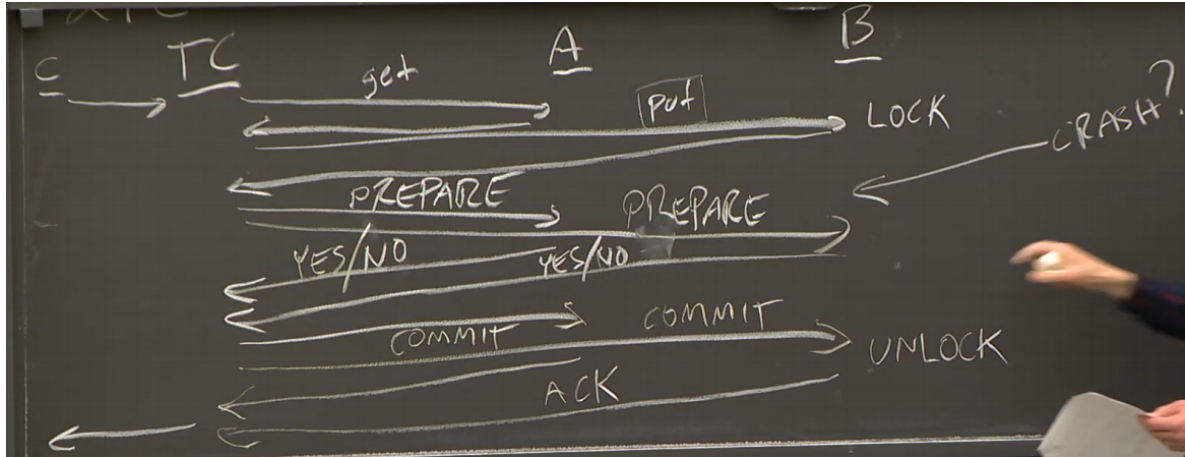 C TC A B
get
put LOCK
CRASH?
PREPARE PREPARE
YES/NO YES/NO
COMMIT COMMIT
UNLOCK
ACK